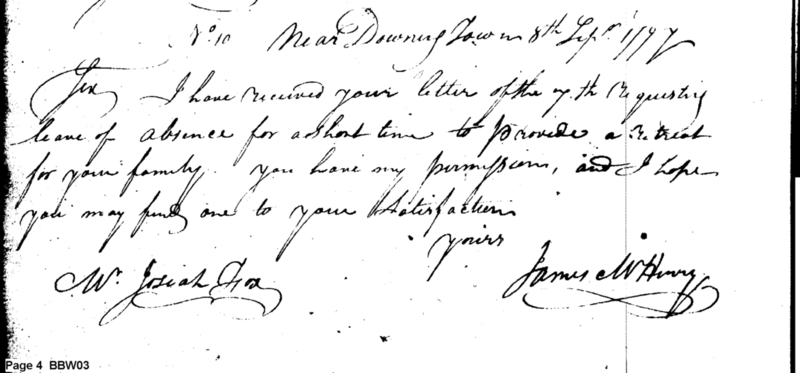 No. 10 Near Downing Town 8th Sepr. 1797
Sir, I have received your letter of the 7th requesting
leave of absence for a short time to provide a retreat
for your family. you have my permission, and I hope
you may find one to your satisfaction
yours
Mr. Josiah Fox James McHenry
Page 4 BBW03